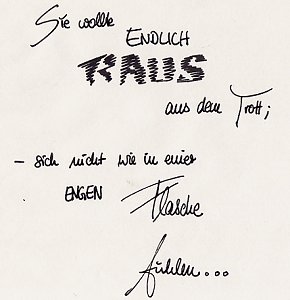 Sie wollte
ENDLICH
RAUS
aus dem Trott;
- sich nicht wie in einer
ENGEN Flasche
fühlen...